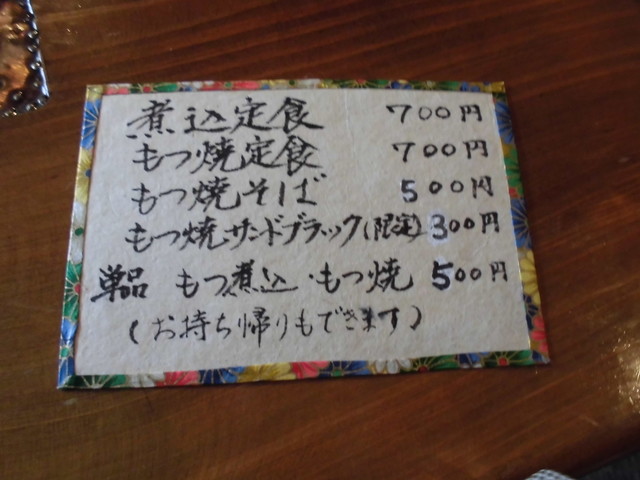 煮込定食 700円
もつ焼定食 700円
もつ焼そば 500円
もつ焼サンドブラック(限定) 300円
単品 もつ煮込・もつ焼 500円
(お持ち帰りもできます)